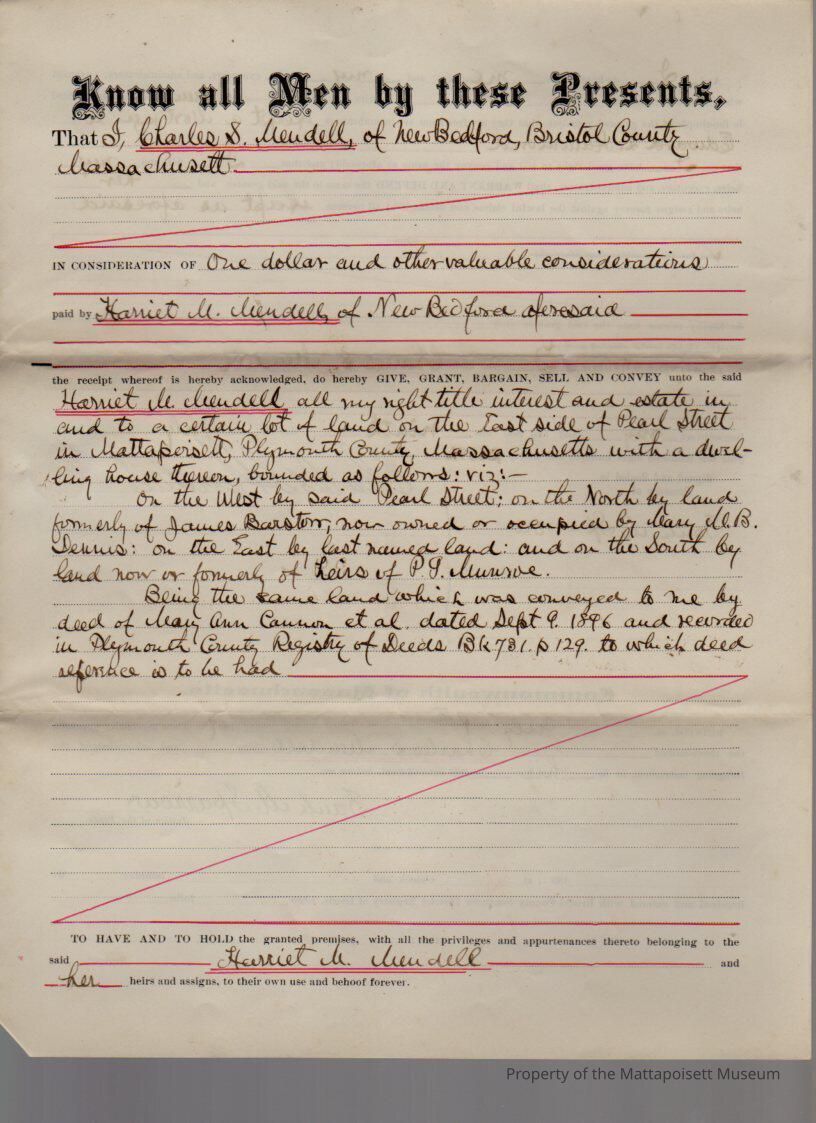 Know all Men by these Presents,
That I, Charles S. Mendell, of New Bedford, Bristol County
Massachusetts
IN CONSIDERATION OF One dollar and other valuable considerations
paid by Harriet M. Mendell, of New Bedford aforesaid
the receipt whereof is hereby acknowledged, do hereby GIVE, GRANT, BARGAIN, SELL AND CONVEY unto the said
Harriet M. Mendell all my right title interest and estate in
and to a certain lot of land on the East side of Pearl Street
in Mattapoisett, Plymouth County, Massachusetts with a dwel-
ling house thereon, bounded as follows: viz:-
On the West by said Pearl Street; on the North by land
formerly of James Barstow, now owned or occupied by Mary M. B.
Dennis: on the East by last named land: and on the South by
land now or formerly of heirs of P. G. Munroe.
Being the same land which was conveyed to me by
deed of Mary Ann Cannon et al. dated Sept 9. 1896 and recorded
in Plymouth County Registry of Deeds Bk 731. p 129. to which deed
reference is to be had
TO HAVE AND TO HOLD the granted premises, with all the privileges and appurtenances thereto belonging to the
said Harriet M. Mendell and
her heirs and assigns, to their own use and behoof forever.
Property of the Mattapoisett Museum